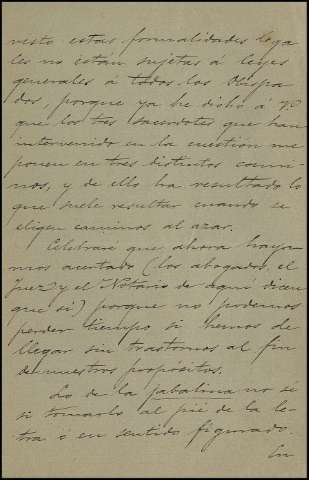 vesto estas formalidades lega
les no están sujetas á leyes
generales á todos los Obispa
dos, porque ya he dicho á V.
que los tres sacerdotes que han
intervenido en la cuestión me
ponen en tres distintos cami-
nos, y de ello ha resultado lo
que suele resultar cuando se
eligen caminos al azar.
Celebraré que ahora haya-
mos acertado (los abogados, el
Juez y el Notario de aquí dicen
que sí) porque no podemos
perder tiempo si hemos de
llegar sin trastornos al fin
de nuestros propósitos.
Lo de la jabalina no sé
si tomarlo al pié de la le-
tra ó en sentido figurado.
En